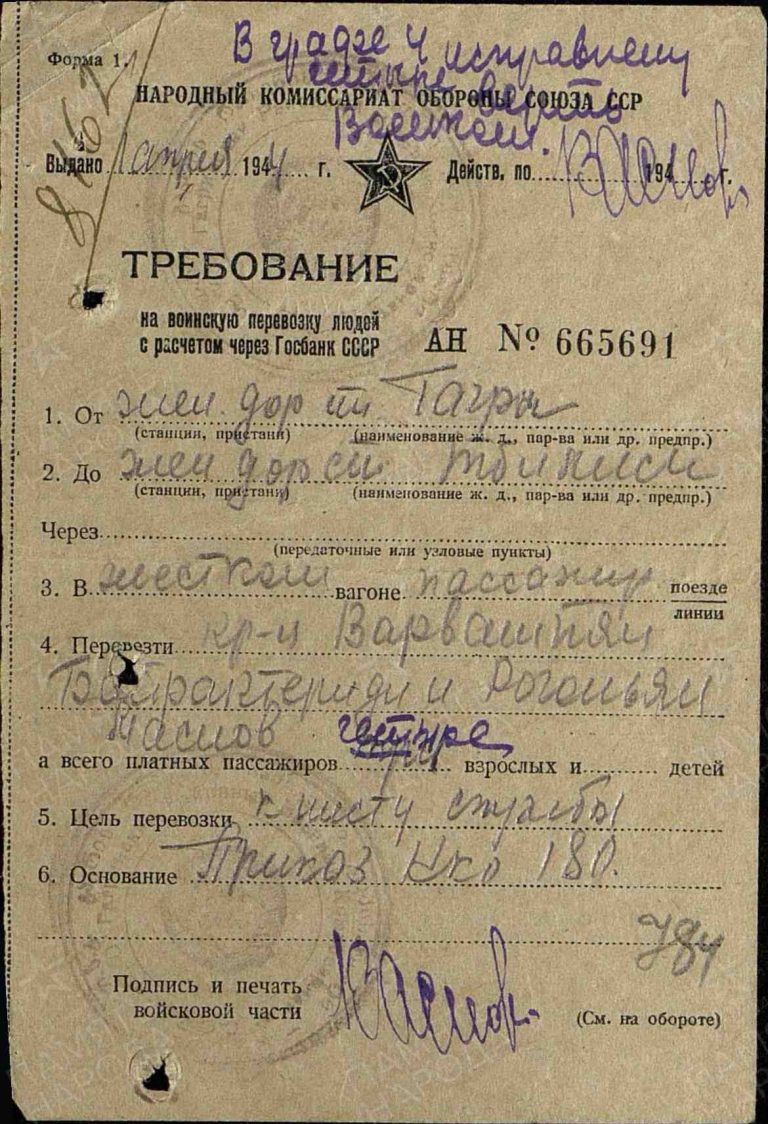 В графе 4 исправлему
четыре верить
Форма 1.
НАРОДНЫЙ КОМИССАРИАТ ОБОРОНЫ СОЮЗА ССР
Выдано 1 апреля 1944 г. Действ. по 194 г.
ТРЕБОВАНИЕ
на воинскую перевозку людей
с расчетом через Госбанк СССР
АН № 665691
1. От жел. дор ст. Гагры
(станции, пристани) (наименование ж. д., пар-ва или др. предпр.)
2. До жел дор ст. Тбилиси
(станции, пристани) (наименование ж. д., пар-ва или др. предпр.)
Через
(передаточные или узловые пункты)
3. В жестком вагоне пассажир поезде
линии
4. Перевезти кр-ц Варваштян
и
Маслов четыре
а всего платных пассажиров три взрослых и детей
5. Цель перевозки к месту службы
6. Основание Приказ НКО 180.
Подпись и печать
войсковой части
(См. на обороте)